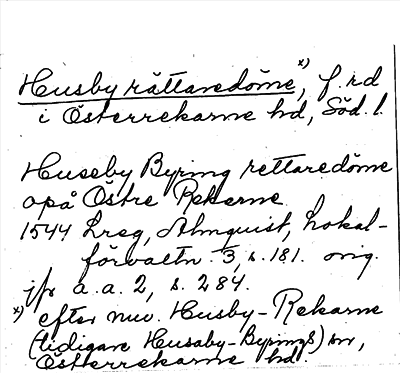 Husby rättaredöme x), f.rd
i Österrekarne hd, Söd. l.
Huseby Byring rettaredöme
opå Östre Rekerne
1544 Lreg, Almquist, Lokal-
förvaltn. 3, s. 181. orig.
jfr a.a. 2, s. 284.
x) efter nuv. Husby-Rekarne
(tidigare Husaby-Byrings) sn,
Österrekarne hd